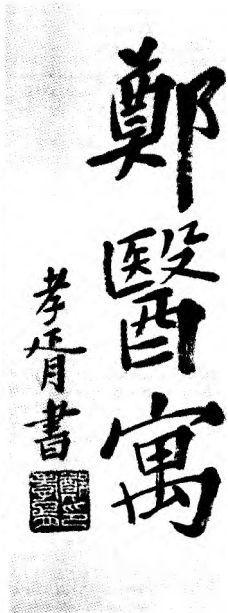 鄭醫寓
孝胥書